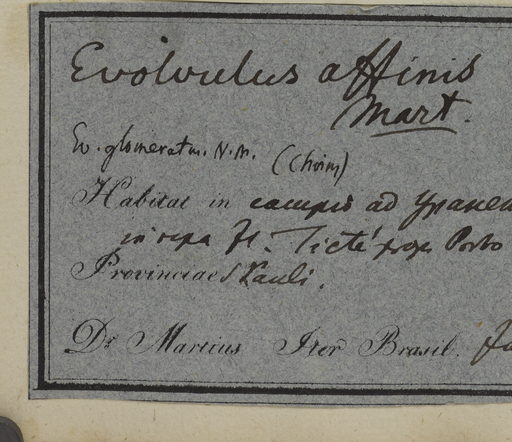 Evolvulus affinis
Mart.
Ev. glomeratus. N. M. (Choisy)
Habitat in campis ad Ypanem
in ripa fl. Tieté prope Porto
Provinciae S Pauli.
Dr Martius Iter Brasil.